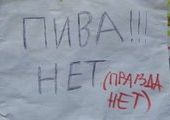 ПИВА!!!
НЕТ
(ПРАВДА
НЕТ)